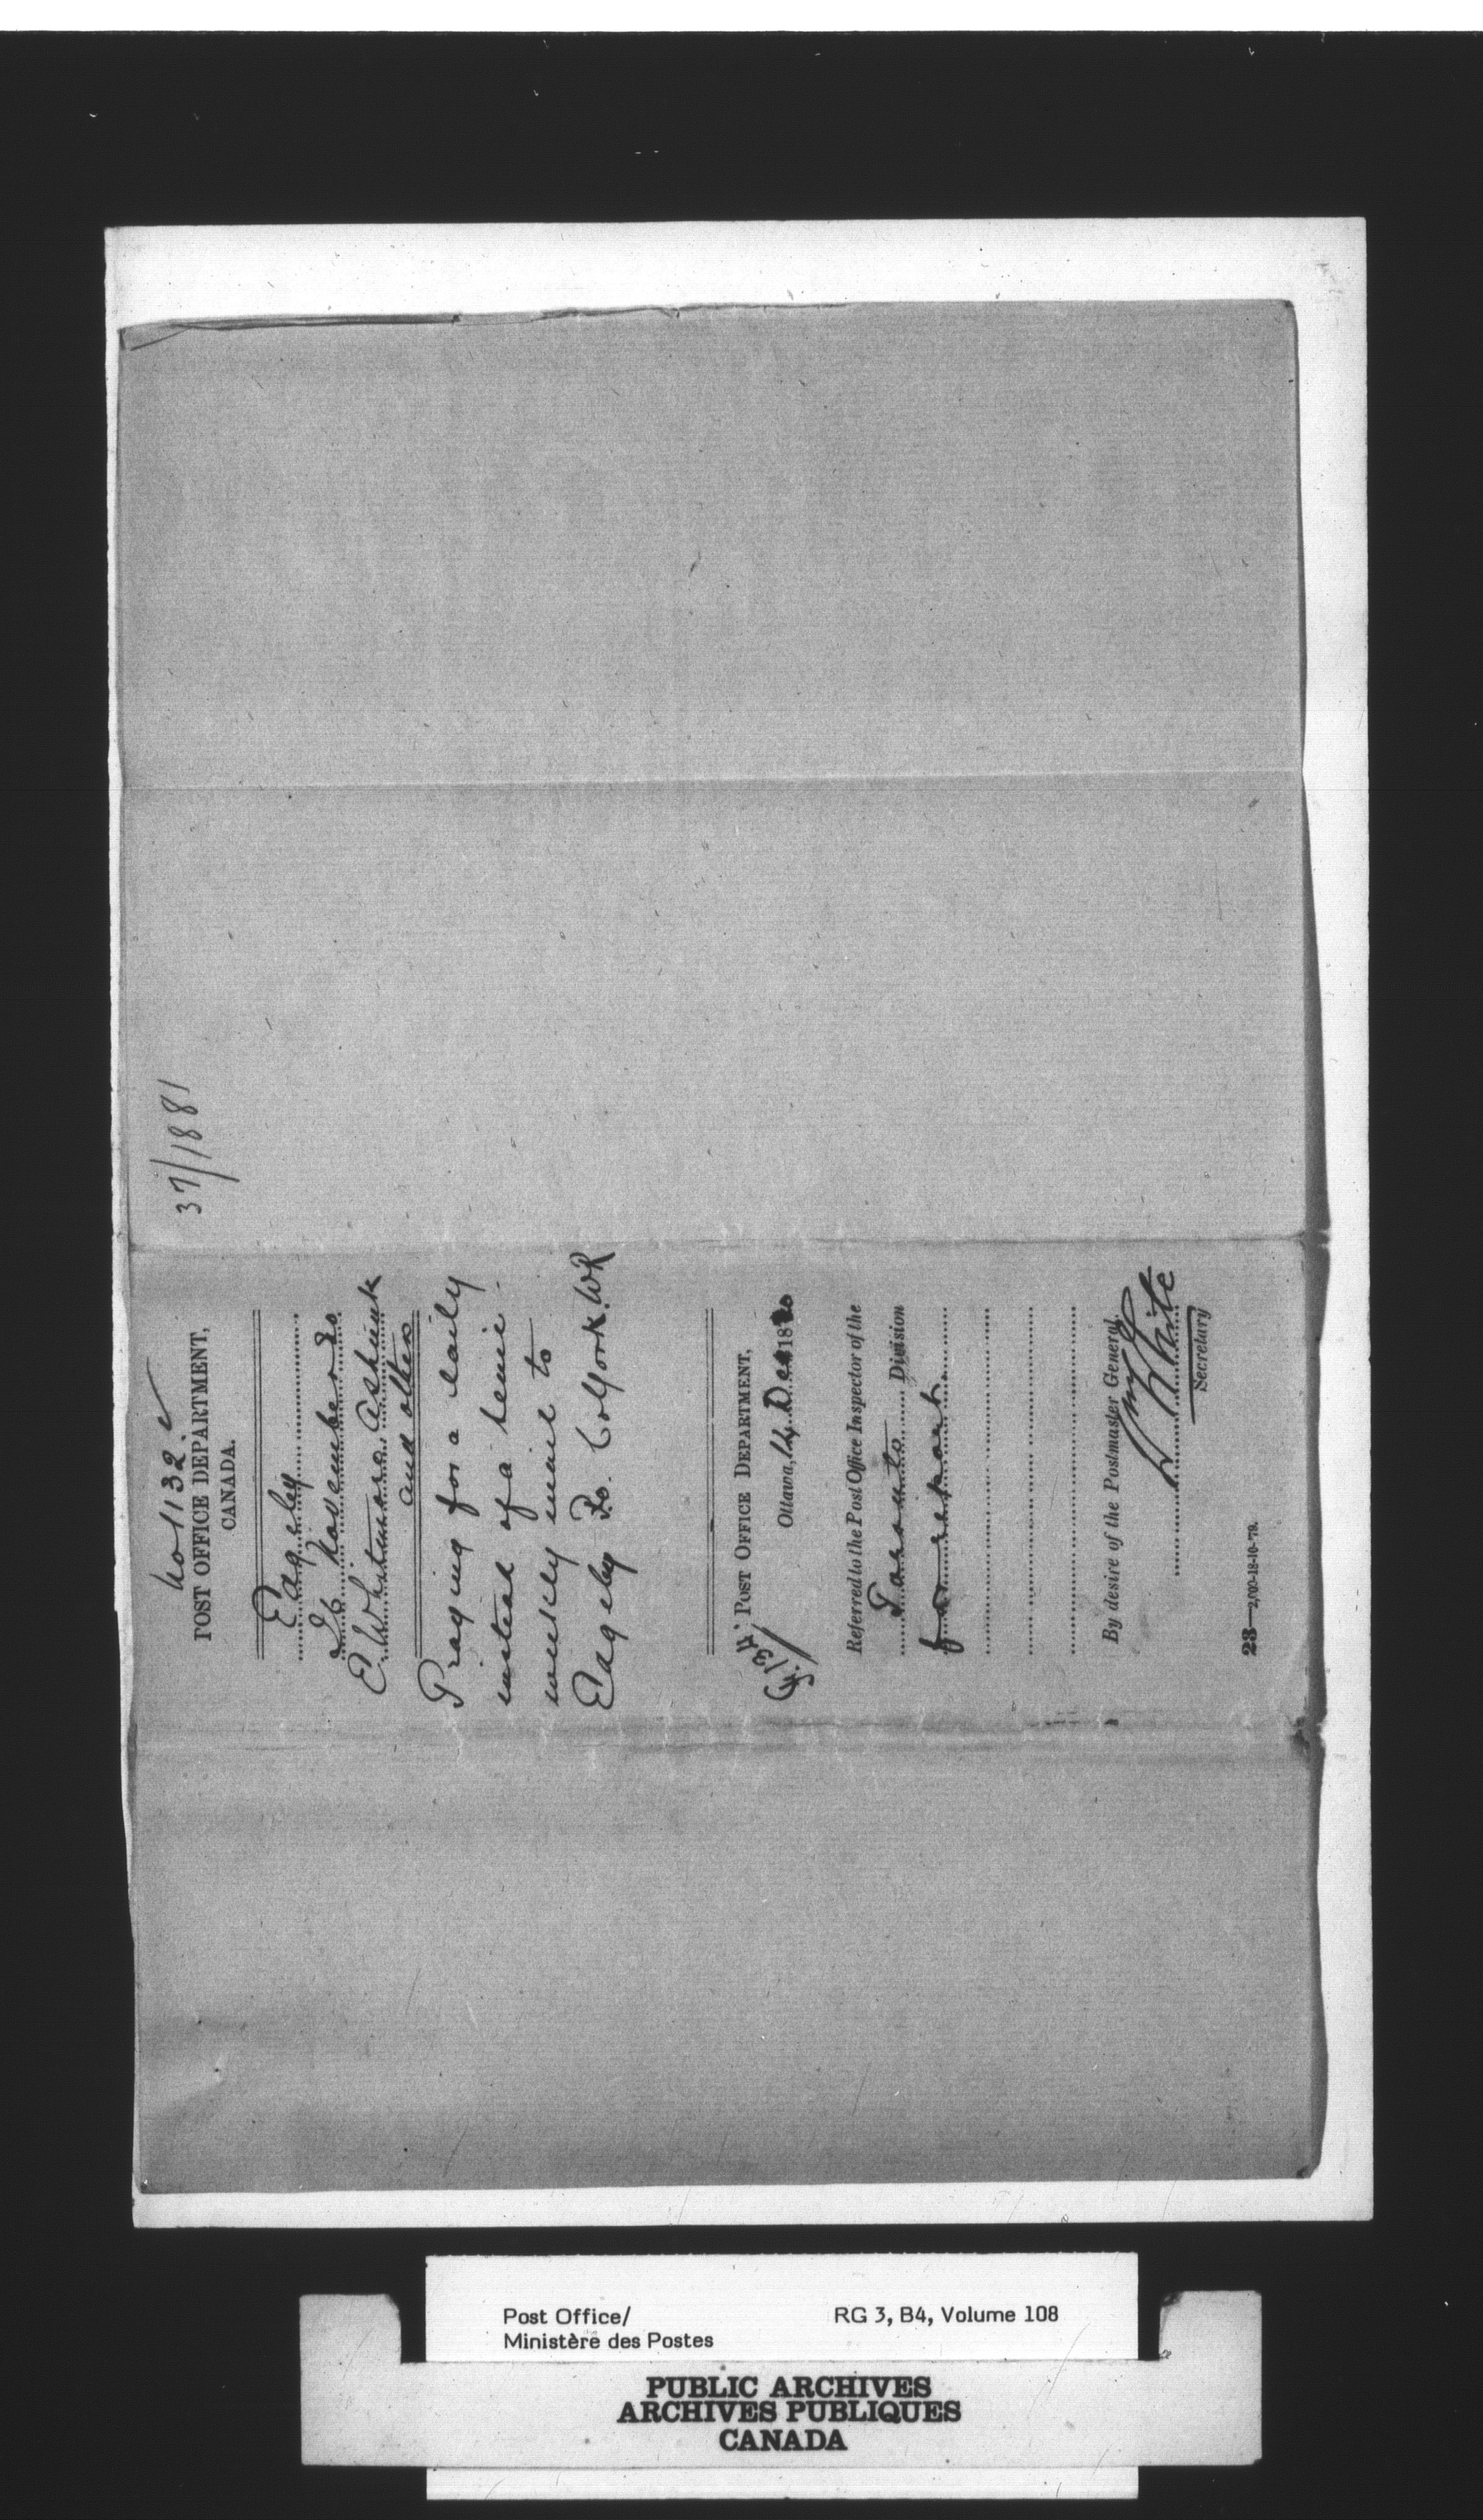 37/1881
No 1132.
POST OFFICE DEPARTMENT,
CANADA.
Edgeley
26 November 80
E Whitmore Ashunk
and others
Praying for a daily
instead of a semi-
weekly mail to
Edgeley P.O. Co York. WR
POST OFFICE DEPARTMENT,
Ottawa, 14 Dec 1880
Referred to the Post Office Inspector of the
Toronto Division
for report.
By desire of the Postmaster General,
White
Secretary
23—2,000-18-10-79.
Post Office/
Ministère des Postes
RG 3, B4, Volume 108
PUBLIC ARCHIVES
ARCHIVES PUBLIQUES
CANADA